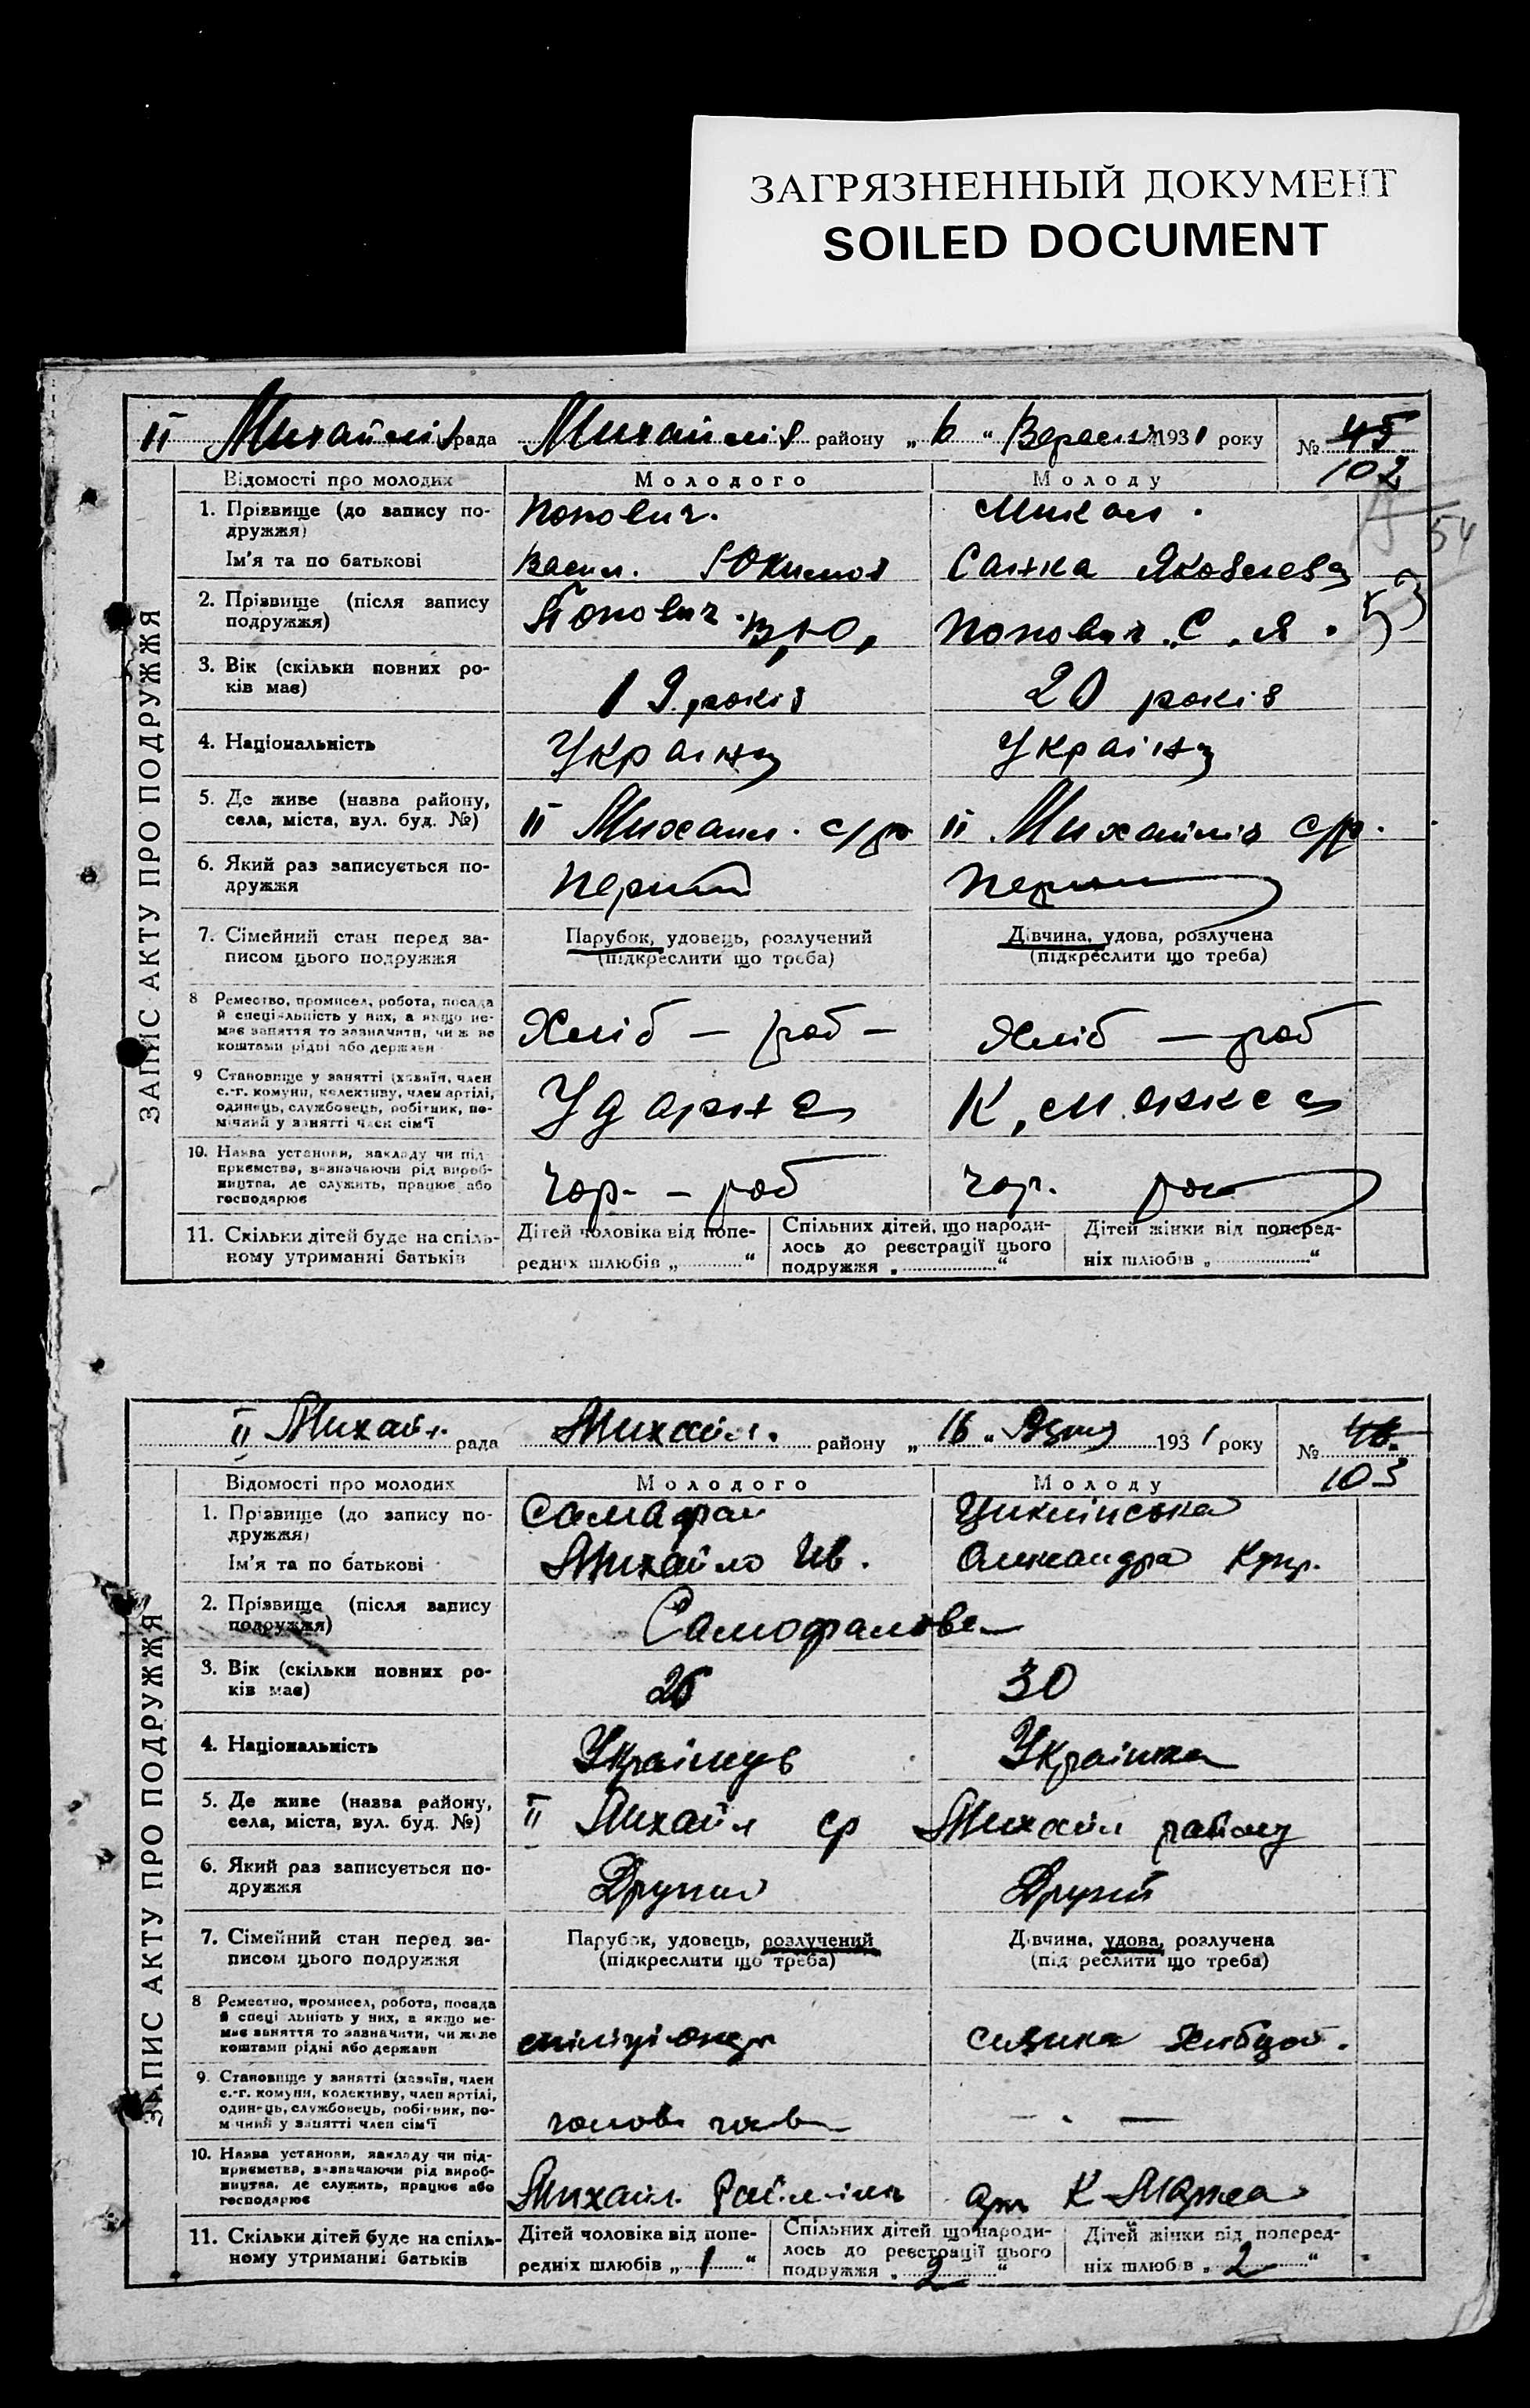 ЗАГРЯЗНЕННЫЙ ДОКУМЕНТ
SOILED DOCUMENT
II Михайлів рада Михайлів району „ 6 “ Вересня 1931 року № 45
102
Відомості про молодих Молодого Молоду
54
53
ЗАПИС АКТУ ПРО ПОДРУЖЖЯ
1. Прізвище (до запису по-
дружжя)
Попович.
Ім'я та по батькові Васил. Юхимов Санка Яковлева
2. Прізвище (після запису
подружжя)
Попович. В, Ю, Попович. С. Я.
3. Вік (скільки повних ро-
ків має)
19 років 20 років
4. Національність
5. Де живе (назва району,
села, міста, вул. буд. №)
II Михаил. с/р II Михайлів с/р.
6. Який раз записується по-
дружжя
7. Сімейний стан перед за-
писом цього подружжя
Парубок, удовець, розлучений
(підкреслити що треба)
Дівчина, удова, розлучена
(підкреслити що треба)
8 Ремество, промисел, робота, посада
й спеціальність у них, а якщо не-
має заняття то зазначити, чи ж не
коштами рідні або держави
Хліб — роб — Хліб — роб
9 Становище у занятті (хазяїн, член
с.-г. комуни, колективу, член артілі,
одинець, службовець, робітник, по-
мічний у занятті член сім'ї
10. Назва установи, закладу чи під-
приємства, зазначаючи рід вироб-
ництва, де служить, працює або
господарює
чор. — роб чор.
11. Скільки дітей буде на спіль-
ному утриманні батьків
Дітей чоловіка від попе-
редніх шлюбів „ “
Спільних дітей, що народи-
лось до реєстрації цього
подружжя „ “
Дітей жінки від поперед-
ніх шлюбів „ “
II Михайл. рада Михайл. району „ 16 “ 1931 року № 46.
103
Відомості про молодих Молодого Молоду
ЗАПИС АКТУ ПРО ПОДРУЖЖЯ
1. Прізвище (до запису по-
дружжя)
Ім'я та по батькові Михайло Ив. Олександра
2. Прізвище (після запису
подружжя)
Самофалова
3. Вік (скільки повних ро-
ків має)
30
4. Національність Українка
5. Де живе (назва району,
села, міста, вул. буд. №)
II Михайл ср Михайл району
6. Який раз записується по-
дружжя
Другий Другий
7. Сімейний стан перед за-
писом цього подружжя
Парубок, удовець, розлучений
(підкреслити що треба)
Дівчина, удова, розлучена
(підкреслити що треба)
8 Ремество, промисел, робота, посада
й спеціальність у них, а якщо не-
має заняття то зазначити, чи живе
коштами рідні або держави
9. Становище у занятті (хазяїн, член
с.-г. комуни, колективу, член артілі,
одинець, службовець, робітник, по-
мічний у занятті член сім'ї
10. Назва установи, закладу чи під-
приємства, зазначаючи рід вироб-
ництва, де служить, працює або
господарює
Михайл. К-Маркса
11. Скільки дітей буде на спіль-
ному утриманні батьків
Дітей чоловіка від попе-
редніх шлюбів „ 1 “
Спільних дітей, що народи-
лось до реєстрації цього
подружжя „ 2 “
Дітей жінки від поперед-
ніх шлюбів „ 2 “